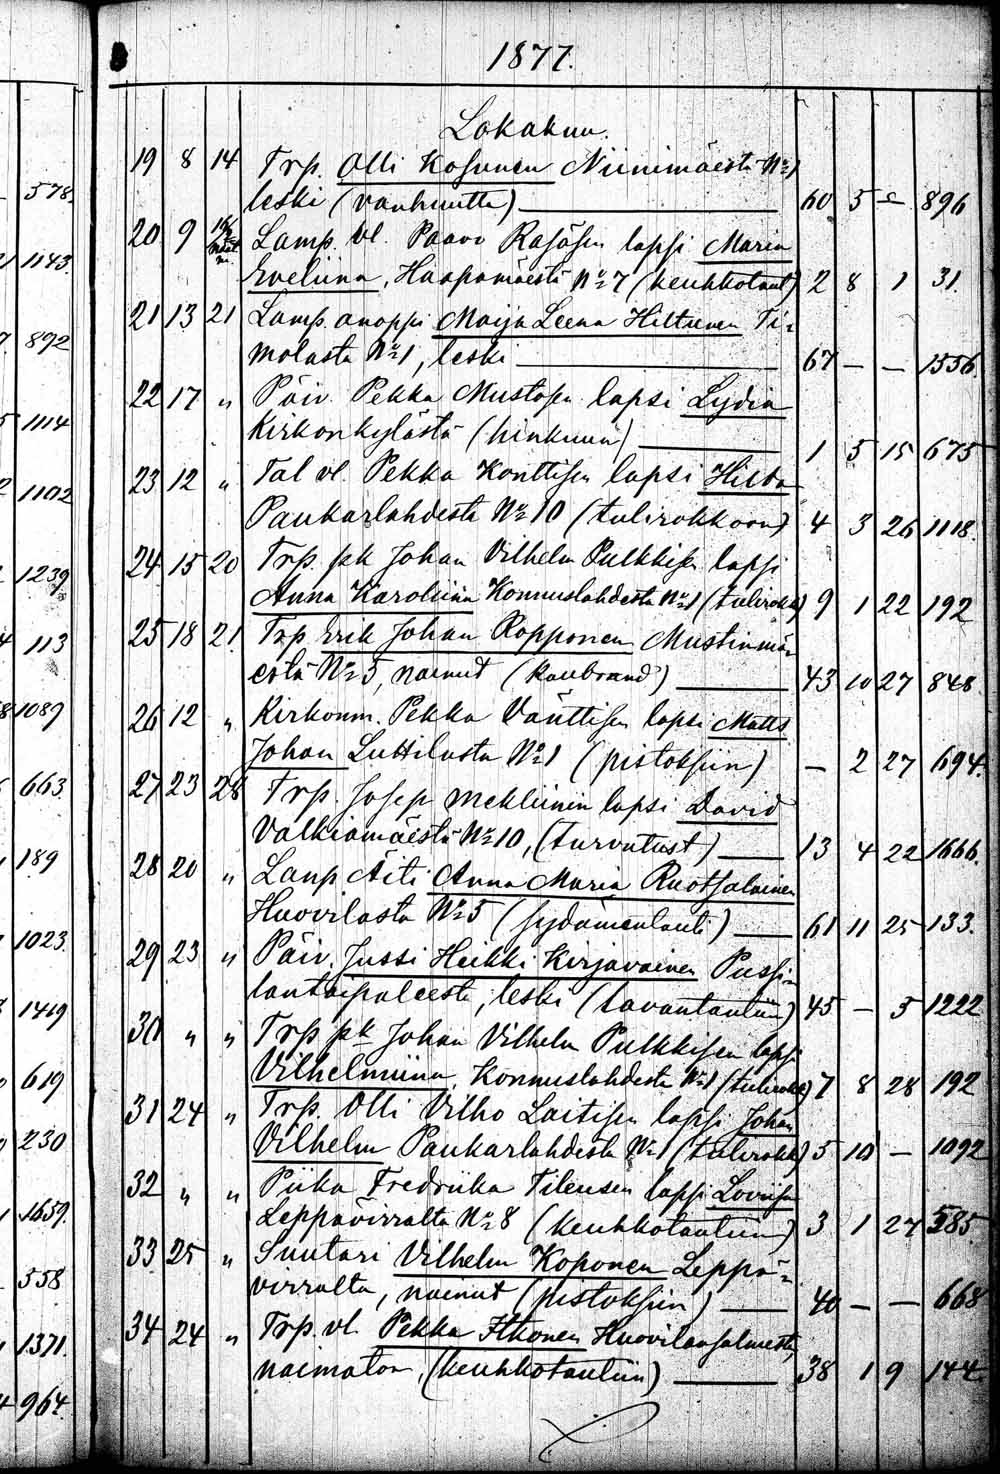 1877.
Lokakuu.
578.
19 8 14 Trp. Olli Kosunen Niinimäestä No 1
leski (vanhuutta) 60 5 – 896
1143.
20 9 Lamp. vl. Paavo Rasäsen lapsi Maria
Eveliina, Haapamäestä No 7 (keuhkotaut) 2 8 1 31.
892
21 13 21 Lamp. anoppi Maija Leena Hiltunen Ti-
molasta No 1, leski 67 – – 1556.
1114
22 17 " Päiv. Pekka Mustosen lapsi Lydia
Kirkonkylästä (hinkuun) 1 5 15 675
1102
23 12 " Tal vl. Pekka Konttisen lapsi Hilda
Paukarlahdesta No 10 (tulirokkoon) 4 3 26 1118.
1239
24 15 20 Trp. pk Johan Vilhelm Pulkkisen lapsi
Anna Karoliina Konnuslahdesta No 1 (tulirokk) 9 1 22 192
113
25 18 21. Trp Erik Johan Ropponen Mustinmä-
estä No 5, nainut (kaubrand) 43 10 27 848
1089
26 12 " Kirkonm. Pekka Vänttisen lapsi Matts
Johan Luttilasta No 1 (pistoksiin) – 2 27 694.
663.
27 23 28 Trp. Josep Mekliinin lapsi David
Valkiamäestä No 10, (turvutust) 13 4 22 1666.
189
28 20 " Lamp Äiti Anna Maria Ruotsalainen
Huovilasta No 5 (sydämentauti) 61 11 25 133.
1023.
29 23 " Päiv. Jussi Heikki Kirjavainen Pussi-
lantaipaleesta, leski (lavantautiin) 45 – 5 1222
1419
30 " " Trp pk Johan Vilhelm Pulkkisen lapsi
Vilhelmiina, Konnuslahdesta No 1 (tulirokk) 7 8 28 192
619
31 24 " Trp. Olli Vilho Laitisen lapsi Johan
Vilhelm Paukarlahdesta No 1 (tulirokk) 5 10 – 1092
230
32 " " Piika Fredriika Tilensen lapsi Loviisa
Leppävirralta No 8 (keuhkotautiin) 3 1 27 585.
1659.
33 25 " Suutari Vilhelm Koponen Leppä-
virralta, nainut (pistoksiin) 40 – – 668
558
34 24 " Trp. vl. Pekka Itkonen Huovilansalmesta,
naimaton, (keuhkotautiin) 38 1 9 144.
1371.
964.